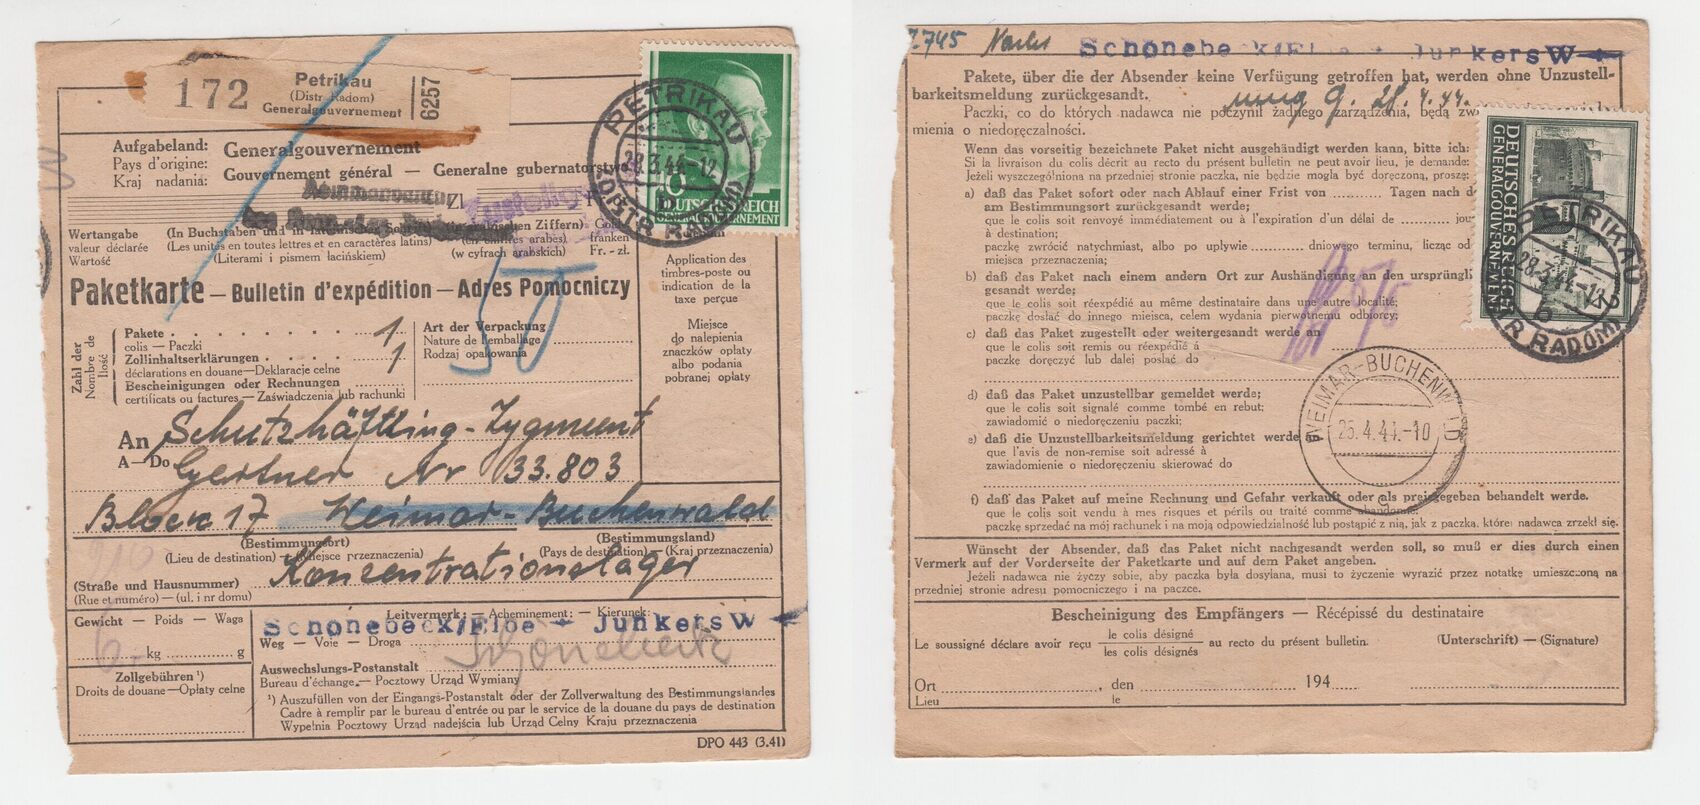 172 Petrikau
(Distr. Radom)
Generalgouvernement
6257
Aufgabeland: Generalgouvernement
Pays d'origine: Gouvernement général — Generalne gubernatorstwo
Kraj nadania:
PETRIKAU
28.3.44-12
b
(DISTR. RADOM)
DEUTSCHES REICH
GENERALGOUVERNEMENT
Wertangabe (In Buchstaben und in
valeur déclarée (Les unités en toutes lettres et en caractères latins) (en chiffres arabes)
Wartość (Literami i pismem łacińskiem) (w cyfrach arabskich) Fr. - zł.
Paketkarte – Bulletin d'expédition – Adres Pomocniczy
Application des
timbres-poste ou
indication de la
taxe perçue
Miejsce
do nalepienia
znaczków opłaty
albo podania
pobranej opłaty
Zahl der
Nombre de
Ilość
Pakete 1
colis — Paczki
Zollinhaltserklärungen 1
déclarations en douane—Deklaracje celne
Bescheinigungen oder Rechnungen
certificats ou factures — Zaświadczenia lub rachunki
Art der Verpackung
Nature de l'emballage
Rodzaj opakowania
50
An Schutzhäftling-Zygmunt
A—Do Gertner Nr 33.803
Block 17 Weimar-Buchenwald
(Bestimmungsort) (Bestimmungsland)
(Lieu de destination) — (Miejsce przeznaczenia) (Pays de destination) — (Kraj przeznaczenia)
Konzentrationslager
(Straße und Hausnummer)
(Rue et numéro) — (ul. i nr domu)
Gewicht — Poids — Waga
6.- kg g
Leitvermerk: — Acheminement: — Kierunek:
Schönebeck/Elbe + Junkers W
Weg — Voie — Droga
Schönebeck
Zollgebühren ¹)
Droits de douane—Opłaty celne
Auswechslungs-Postanstalt
Bureau d'échange.— Pocztowy Urząd Wymiany
¹) Auszufüllen von der Eingangs-Postanstalt oder der Zollverwaltung des Bestimmungslandes
Cadre à remplir par le bureau d'entrée ou par le service de la douane du pays de destination
Wypełnia Pocztowy Urząd nadejścia lub Urząd Celny Kraju przeznaczenia
DPO 443 (3.41)
Schönebeck/Elbe + Junkers W
Pakete, über die der Absender keine Verfügung getroffen hat, werden ohne Unzustell-
barkeitsmeldung zurückgesandt. 28.4.44.
Paczki, co do których nadawca nie poczynił żadnego zarządzenia, będą
mienia o niedoręczalności.
Wenn das vorseitig bezeichnete Paket nicht ausgehändigt werden kann, bitte ich:
Si la livraison du colis décrit au recto du présent bulletin ne peut avoir lieu, je demande:
Jeżeli wyszczególniona na przedniej stronie paczka, nie będzie mogła być doręczona, proszę:
a) daß das Paket sofort oder nach Ablauf einer Frist von Tagen nach
am Bestimmungsort zurückgesandt werde;
que le colis soit renvoyé immédiatement ou à l'expiration d'un délai de
à destination;
paczkę zwrócić natychmiast, albo po upływie dniowego terminu, licząc od
miejsca przeznaczenia;
b) daß das Paket nach einem andern Ort zur Aushändigung an den ursprüngli
gesandt werde;
que le colis soit réexpédié au même destinataire dans une autre localité;
paczkę dosłać do innego miejsca, celem wydania pierwotnemu odbiorcy;
c) daß das Paket zugestellt oder weitergesandt werde an
que le colis soit remis ou réexpédié à
paczkę doręczyć lub dalej posłać do
d) daß das Paket unzustellbar gemeldet werde;
que le colis soit signalé comme tombé en rebut;
zawiadomić o niedoręczeniu paczki;
e) daß die Unzustellbarkeitsmeldung gerichtet werde an
que l'avis de non-remise soit adressé à
zawiadomienie o niedoręczeniu skierować do
f) daß das Paket auf meine Rechnung und Gefahr verkauft oder als preisgegeben behandelt werde.
que le colis soit vendu à mes risques et périls ou traité comme abandonné.
paczkę sprzedać na mój rachunek i na moją odpowiedzialność lub postąpić z nią, jak z paczką, której nadawca zrzekł się.
DEUTSCHES REICH
GENERALGOUVERNEMENT
PETRIKAU
28.3.44-12
b
WEIMAR-BUCHENWALD
25.4.44.-10
Wünscht der Absender, daß das Paket nicht nachgesandt werden soll, so muß er dies durch einen
Vermerk auf der Vorderseite der Paketkarte und auf dem Paket angeben.
Jeżeli nadawca nie życzy sobie, aby paczka była dosyłana, musi to życzenie wyrazić przez notatkę umieszczoną na
przedniej stronie adresu pomocniczego i na paczce.
Bescheinigung des Empfängers — Récépissé du destinataire
Le soussigné déclare avoir reçu le colis désigné / les colis désignés au recto du présent bulletin. (Unterschrift) — (Signature)
Ort , den 194
Lieu le